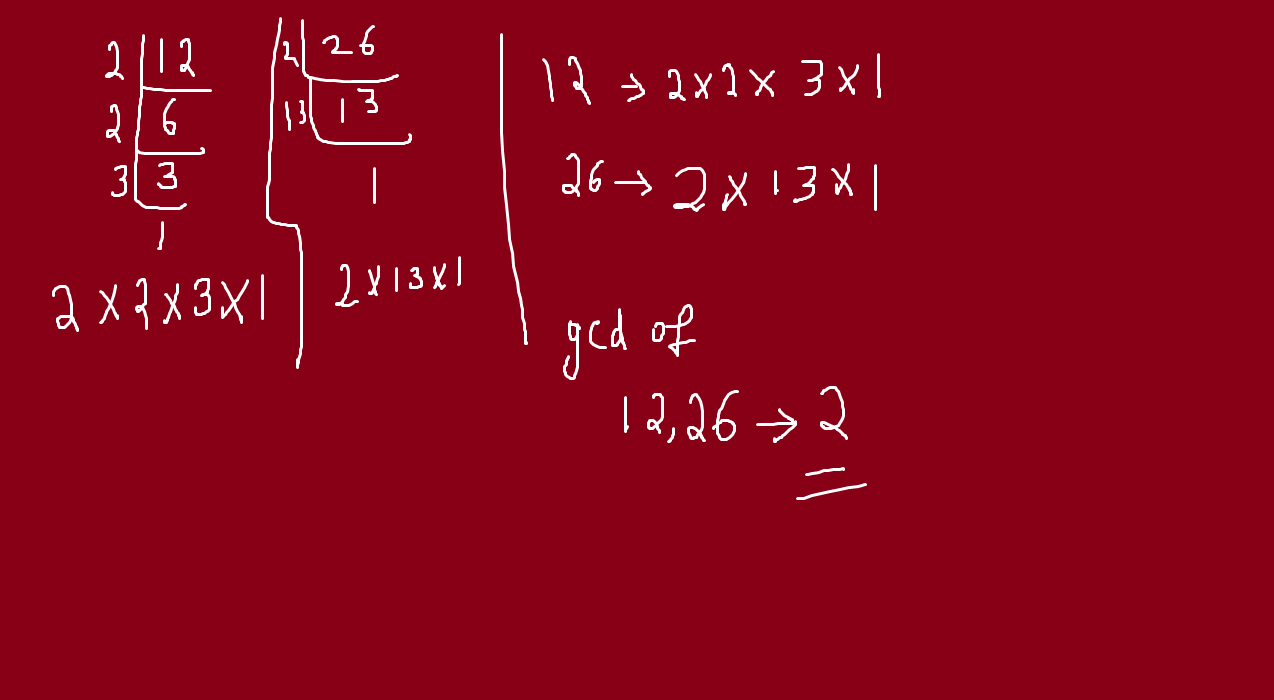 2 12
2 6
3 3
1
2 × 2 × 3 × 1
2 26
13 13
1
2 × 13 × 1
12 → 2 × 2 × 3 × 1
26 → 2 × 13 × 1
gcd of
12,26 → 2